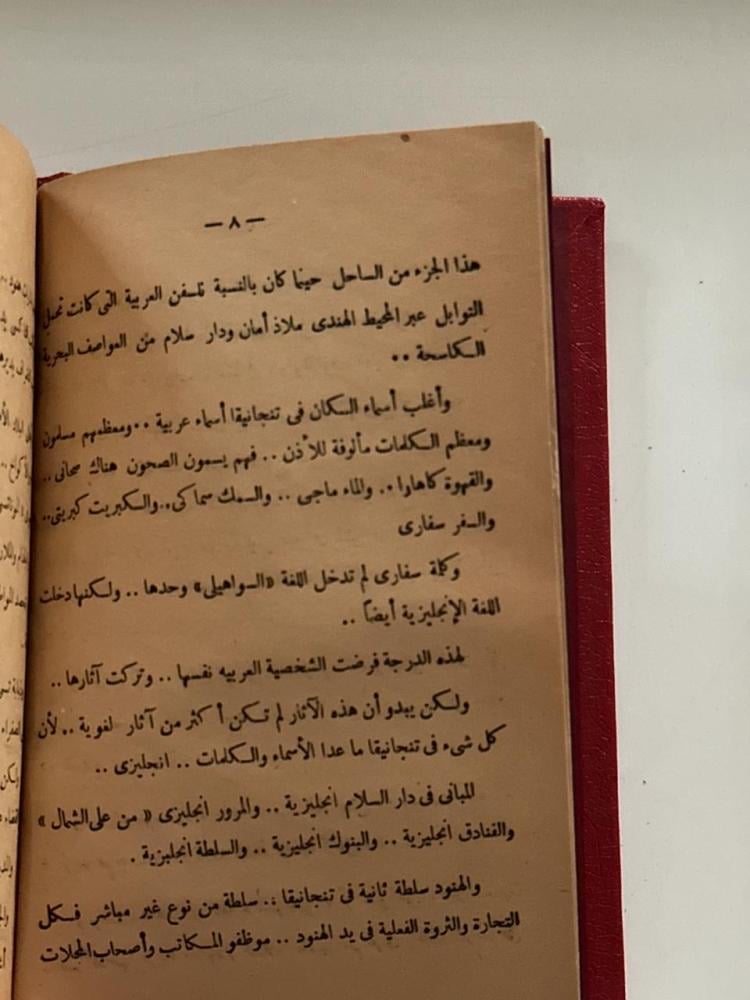 — ٨ —
هذا الجزء من الساحل حينما كان بالنسبة للسفن العربية التى كانت تحمل
التوابل عبر المحيط الهندى ملاذ أمان ودار سلام من العواصف البحرية
الكاسحة ..
وأغلب أسماء السكان فى تنجانيقا أسماء عربية .. ومعظمهم مسلمون
ومعظم الكلمات مألوفة للأذن .. فهم يسمون الصحون هناك صحانى ..
والقهوة كاهاوا .. والماء ماجى .. والسمك سماكى .. والكبريت كبريتى ..
والسفر سفارى
وكلمة سفارى لم تدخل اللغة «السواهيلى» وحدها .. ولكنها دخلت
اللغة الإنجليزية أيضاً ..
لهذه الدرجة فرضت الشخصية العربيه نفسها .. وتركت آثارها ..
ولكن يبدو أن هذه الآثار لم تكن أكثر من آثار لغوية .. لأن
كل شىء فى تنجانيقا ما عدا الأسماء والكلمات .. انجليزى ..
المبانى فى دار السلام انجليزية .. والمرور انجليزى « من على الشمال »
والفنادق انجليزية .. والبنوك انجليزية .. والسلطة انجليزية .
والهنود سلطة ثانية فى تنجانيقا .. سلطة من نوع غير مباشر فكل
التجارة والثروة الفعلية فى يد الهنود .. موظفو المكاتب وأصحاب المحلات